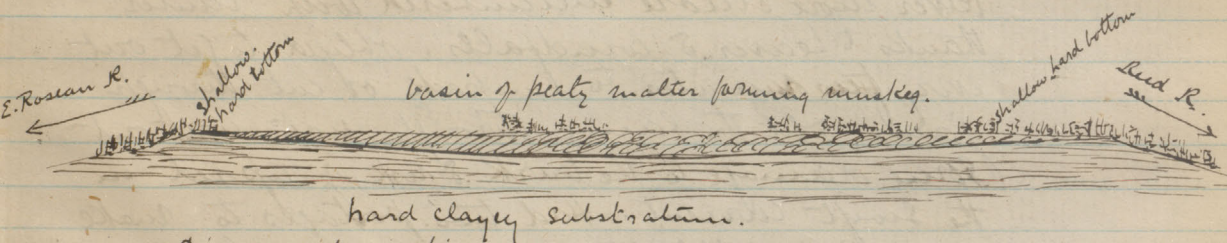 E. Roseau R.
shallow.
hard bottom
basin of peaty matter forming muskeg.
shallow hard bottom
Reed R.
hard clayey substratum.